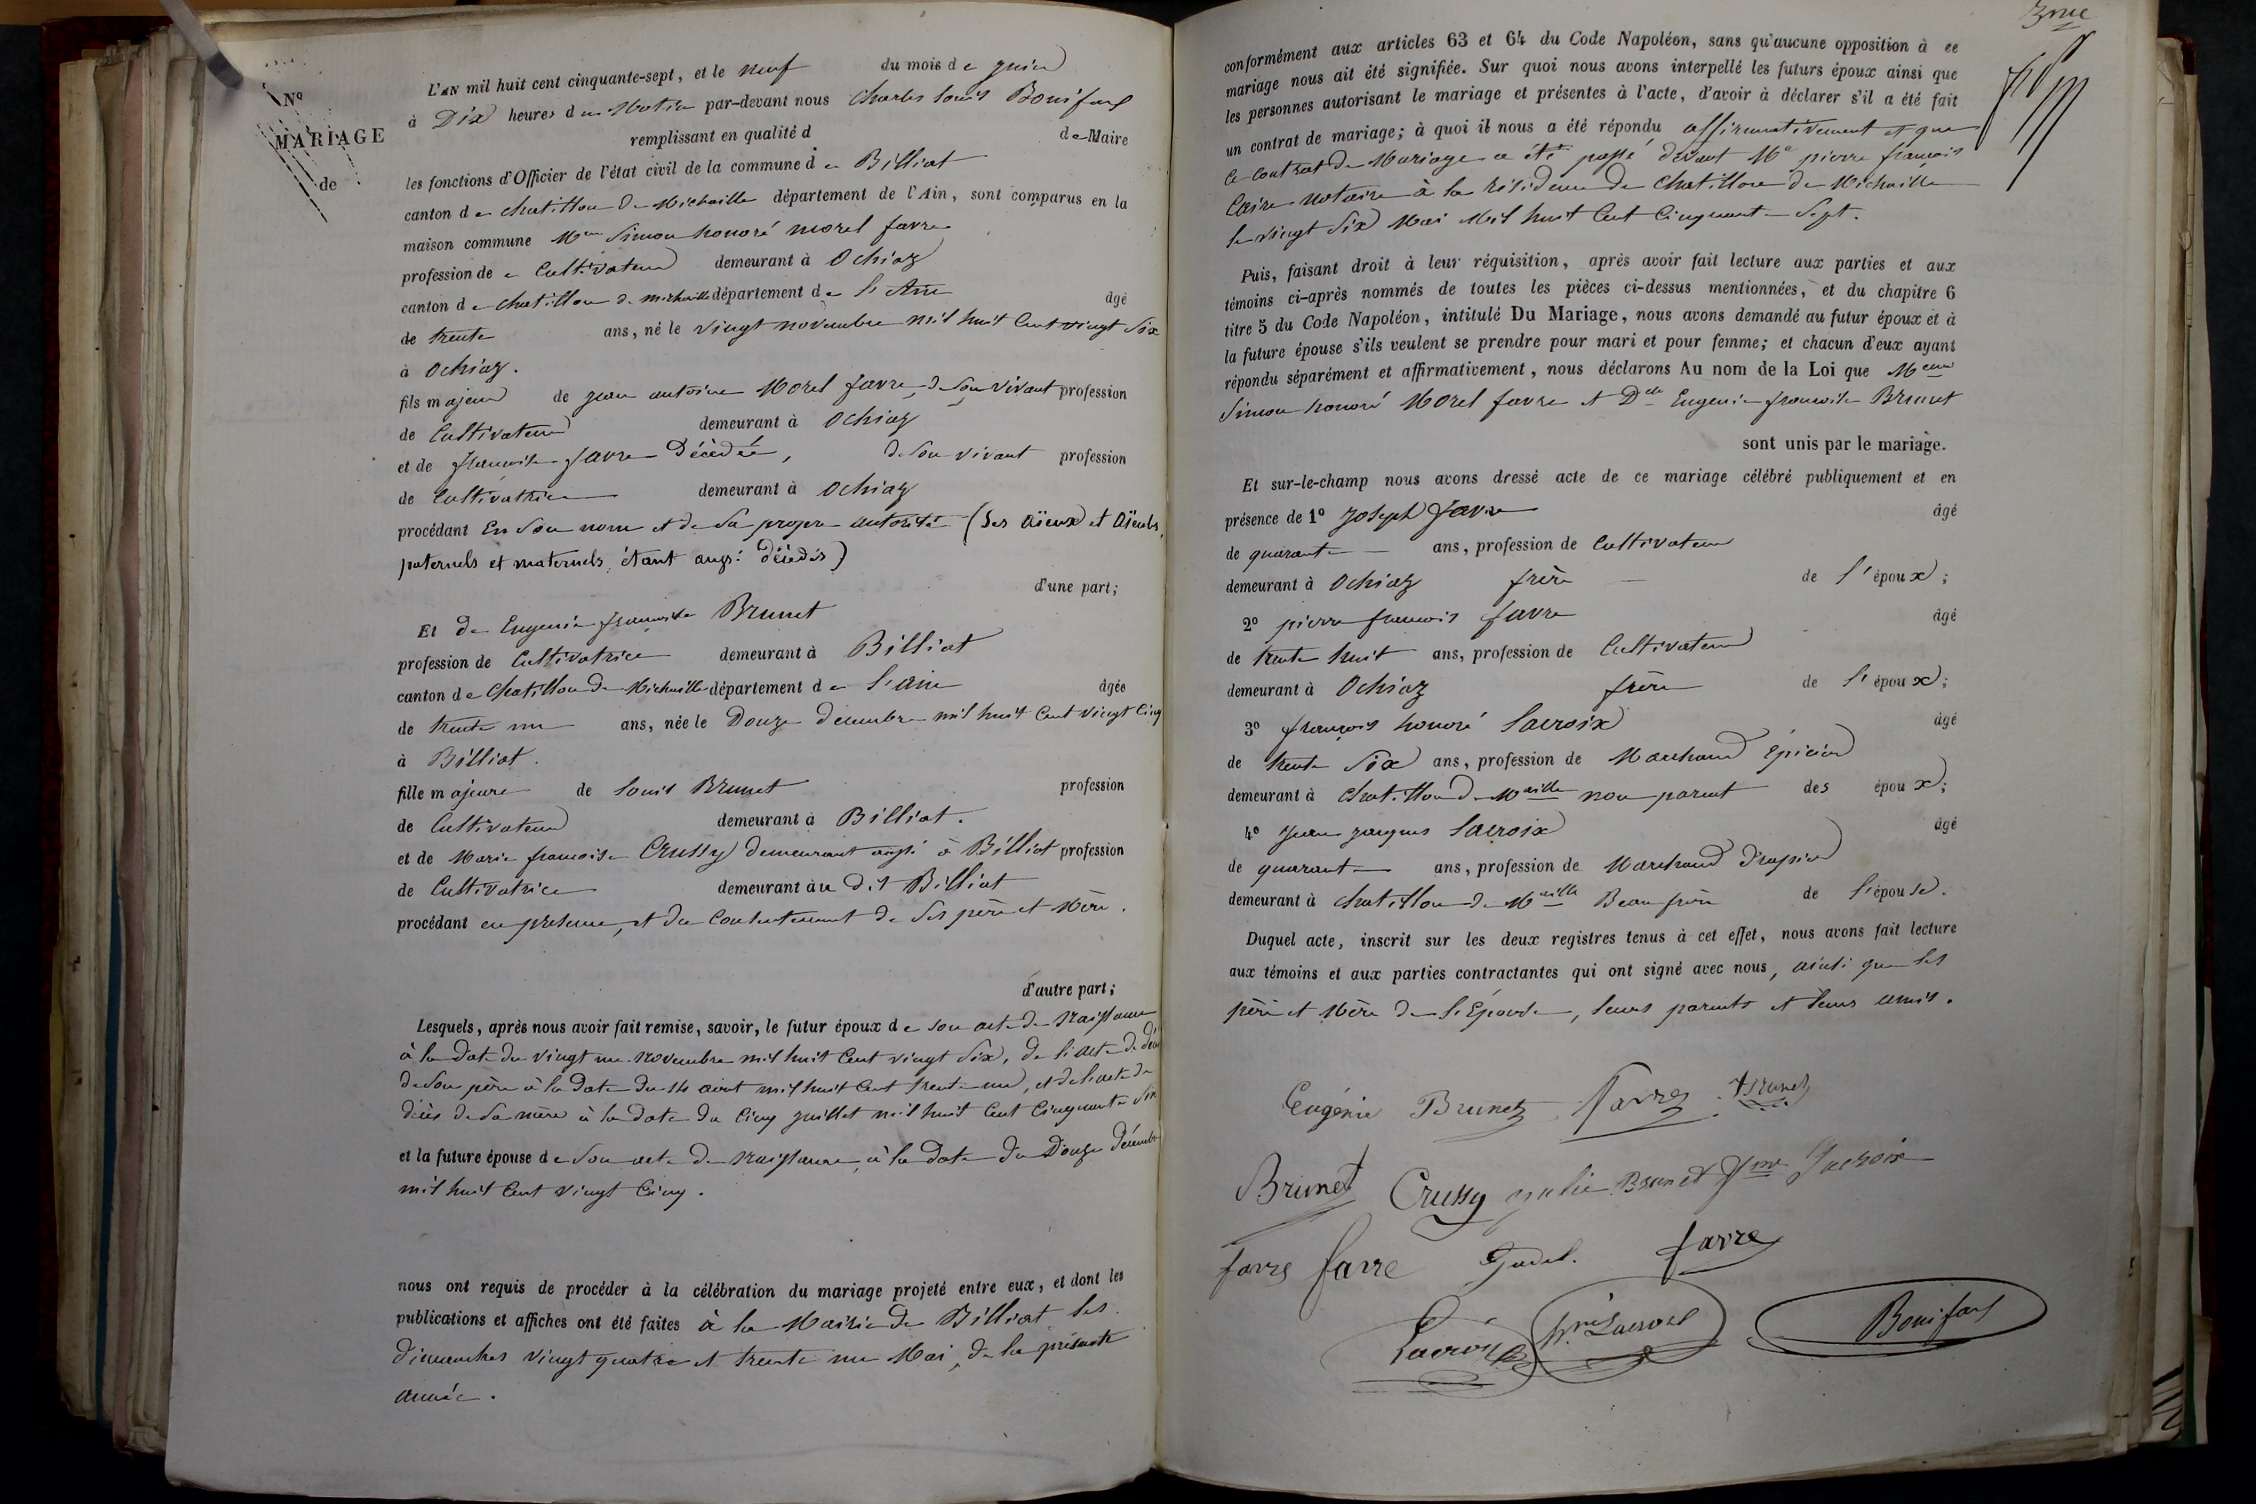 Nº
MARIAGE
de
L'AN mil huit cent cinquante-sept, et le neuf du mois de juin
à Dix heures du Matin par-devant nous Charles Louis Bonifax
remplissant en qualité d de Maire
les fonctions d'Officier de l'état civil de la commune de Billiat
canton de Chatillon de Michaille département de l'Ain, sont comparus en la
maison commune Mr Simon honoré morel favre
profession de Cultivateur demeurant à Ochiaz
canton de Chatillon de michaille département de l'Ain âgé
de trente ans, né le vingt novembre mil huit Cent vingt Six
à Ochiaz.
fils majeur de jean antoine Morel favre, de Son Vivant profession
de Cultivateur demeurant à Ochiaz
et de françoise favre Décédée, de Son vivant profession
de Cultivatrice demeurant à Ochiaz
procédant En Son nom et de Sa propre autorité (Ses aïeux et aïeules,
paternels et maternels, étant aussi décédés)
d'une part;
Et de Eugenie françoise Brunet
profession de Cultivatrice demeurant à Billiat
canton de Chatillon de Michaille département de l'ain âgée
de trente un ans, née le Douze décembre mil huit Cent vingt Cinq
à Billiat.
fille majeure de Louis Brunet profession
de Cultivateur demeurant à Billiat.
et de Marie françoise Crussy demeurant aussi à Billiat profession
de Cultivatrice demeurant au dit Billiat
procédant en presence, et du Consentement de Ses père et Mère.
d'autre part;
Lesquels, après nous avoir fait remise, savoir, le futur époux de son acte de Naissance
à la Date du vingt un novembre mil huit Cent vingt Six, de l'acte de décès
de Son père à la Date du 14 aout mil huit Cent trente un, et de l'acte de
décès de Sa mère à la date du Cinq juillet mil huit Cent Cinquante Six
et la future épouse de Son acte de Naissance, à la Date du Douze décembre
mil huit Cent vingt Cinq.
nous ont requis de procéder à la célébration du mariage projeté entre eux, et dont les
publications et affiches ont été faites à la Mairie de Billiat les
dimanches vingt quatre et trente un Mai, de la présente
année.
3me
conformément aux articles 63 et 64 du Code Napoléon, sans qu'aucune opposition à ce
mariage nous ait été signifiée. Sur quoi nous avons interpellé les futurs époux ainsi que
les personnes autorisant le mariage et présentes à l'acte, d'avoir à déclarer s'il a été fait
un contrat de mariage; à quoi il nous a été répondu affirmativement et que
Ce Contrat de Mariage a été passé devant Me pierre françois
Caire notaire à la résidence de Chatillon de Michaille
le vingt Six Mai Mil huit Cent Cinquante Sept.
Puis, faisant droit à leur réquisition, après avoir fait lecture aux parties et aux
témoins ci-après nommés de toutes les pièces ci-dessus mentionnées, et du chapitre 6
titre 5 du Code Napoléon, intitulé Du Mariage, nous avons demandé au futur époux et à
la future épouse s'ils veulent se prendre pour mari et pour femme; et chacun d'eux ayant
répondu séparément et affirmativement, nous déclarons Au nom de la Loi que
Simon honoré Morel favre et Dlle Eugenie françoise Brunet
sont unis par le mariage.
Et sur-le-champ nous avons dressé acte de ce mariage célébré publiquement et en
présence de 1º Joseph favre âgé
de quarante ans, profession de Cultivateur
demeurant à Ochiaz frère de l'époux;
2º pierre françois favre âgé
de trente huit ans, profession de Cultivateur
demeurant à Ochiaz frère de l'époux;
3º françois honoré Lacroix âgé
de trente Six ans, profession de Marchand Epicier
demeurant à Chatillon de Maille non parent des époux;
4º Jean Jacques Lacroix âgé
de quarante ans, profession de Marchand Drapier
demeurant à Chatillon de Maille Beau frère de l'épouse.
Duquel acte, inscrit sur les deux registres tenus à cet effet, nous avons fait lecture
aux témoins et aux parties contractantes qui ont signé avec nous, ainsi que les
père et Mère de l'Epouse, leurs parents et leurs amis.
Eugénie Brunet Favre Brunet
Brunet Crussy julie Brunet fme Lacroix
favre favre favre
Lacroix Lacroix Bonifax